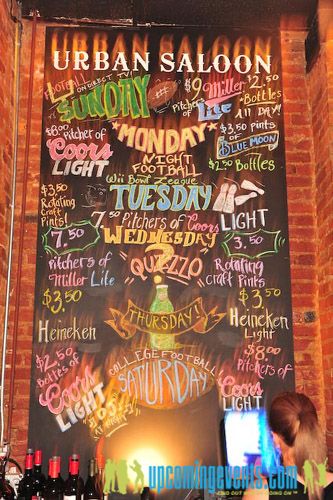 URBAN SALOON
FOOTBALL ON DIRECT TV!
SUNDAY
$9 Pitchers of Miller Lite
$2.50 Bottles
All DAY!
MONDAY
NIGHT
FOOTBALL
$8.00 Pitcher of
Coors
LIGHT
$3.50 pints
OF
BLUE MOON
$2.50 Bottles
Wii Bowl League
TUESDAY
$3.50
Rotating
Craft
Pints!
7.50 Pitchers of Coors
LIGHT
WEDNESDAY
QUIZZO
7.50
Pitchers of
Miller Lite
3.50
Rotating
Craft Pints
THURSDAY!
$3.50
Heineken
$3.50
Heineken
Light
COLLEGE FOOTBALL
SATURDAY
$2.50
Bottles of
Coors
LIGHT
$8.00
Pitchers of
Coors
LIGHT
upcomingevents.com
FIND OUT WHAT'S GOING ON